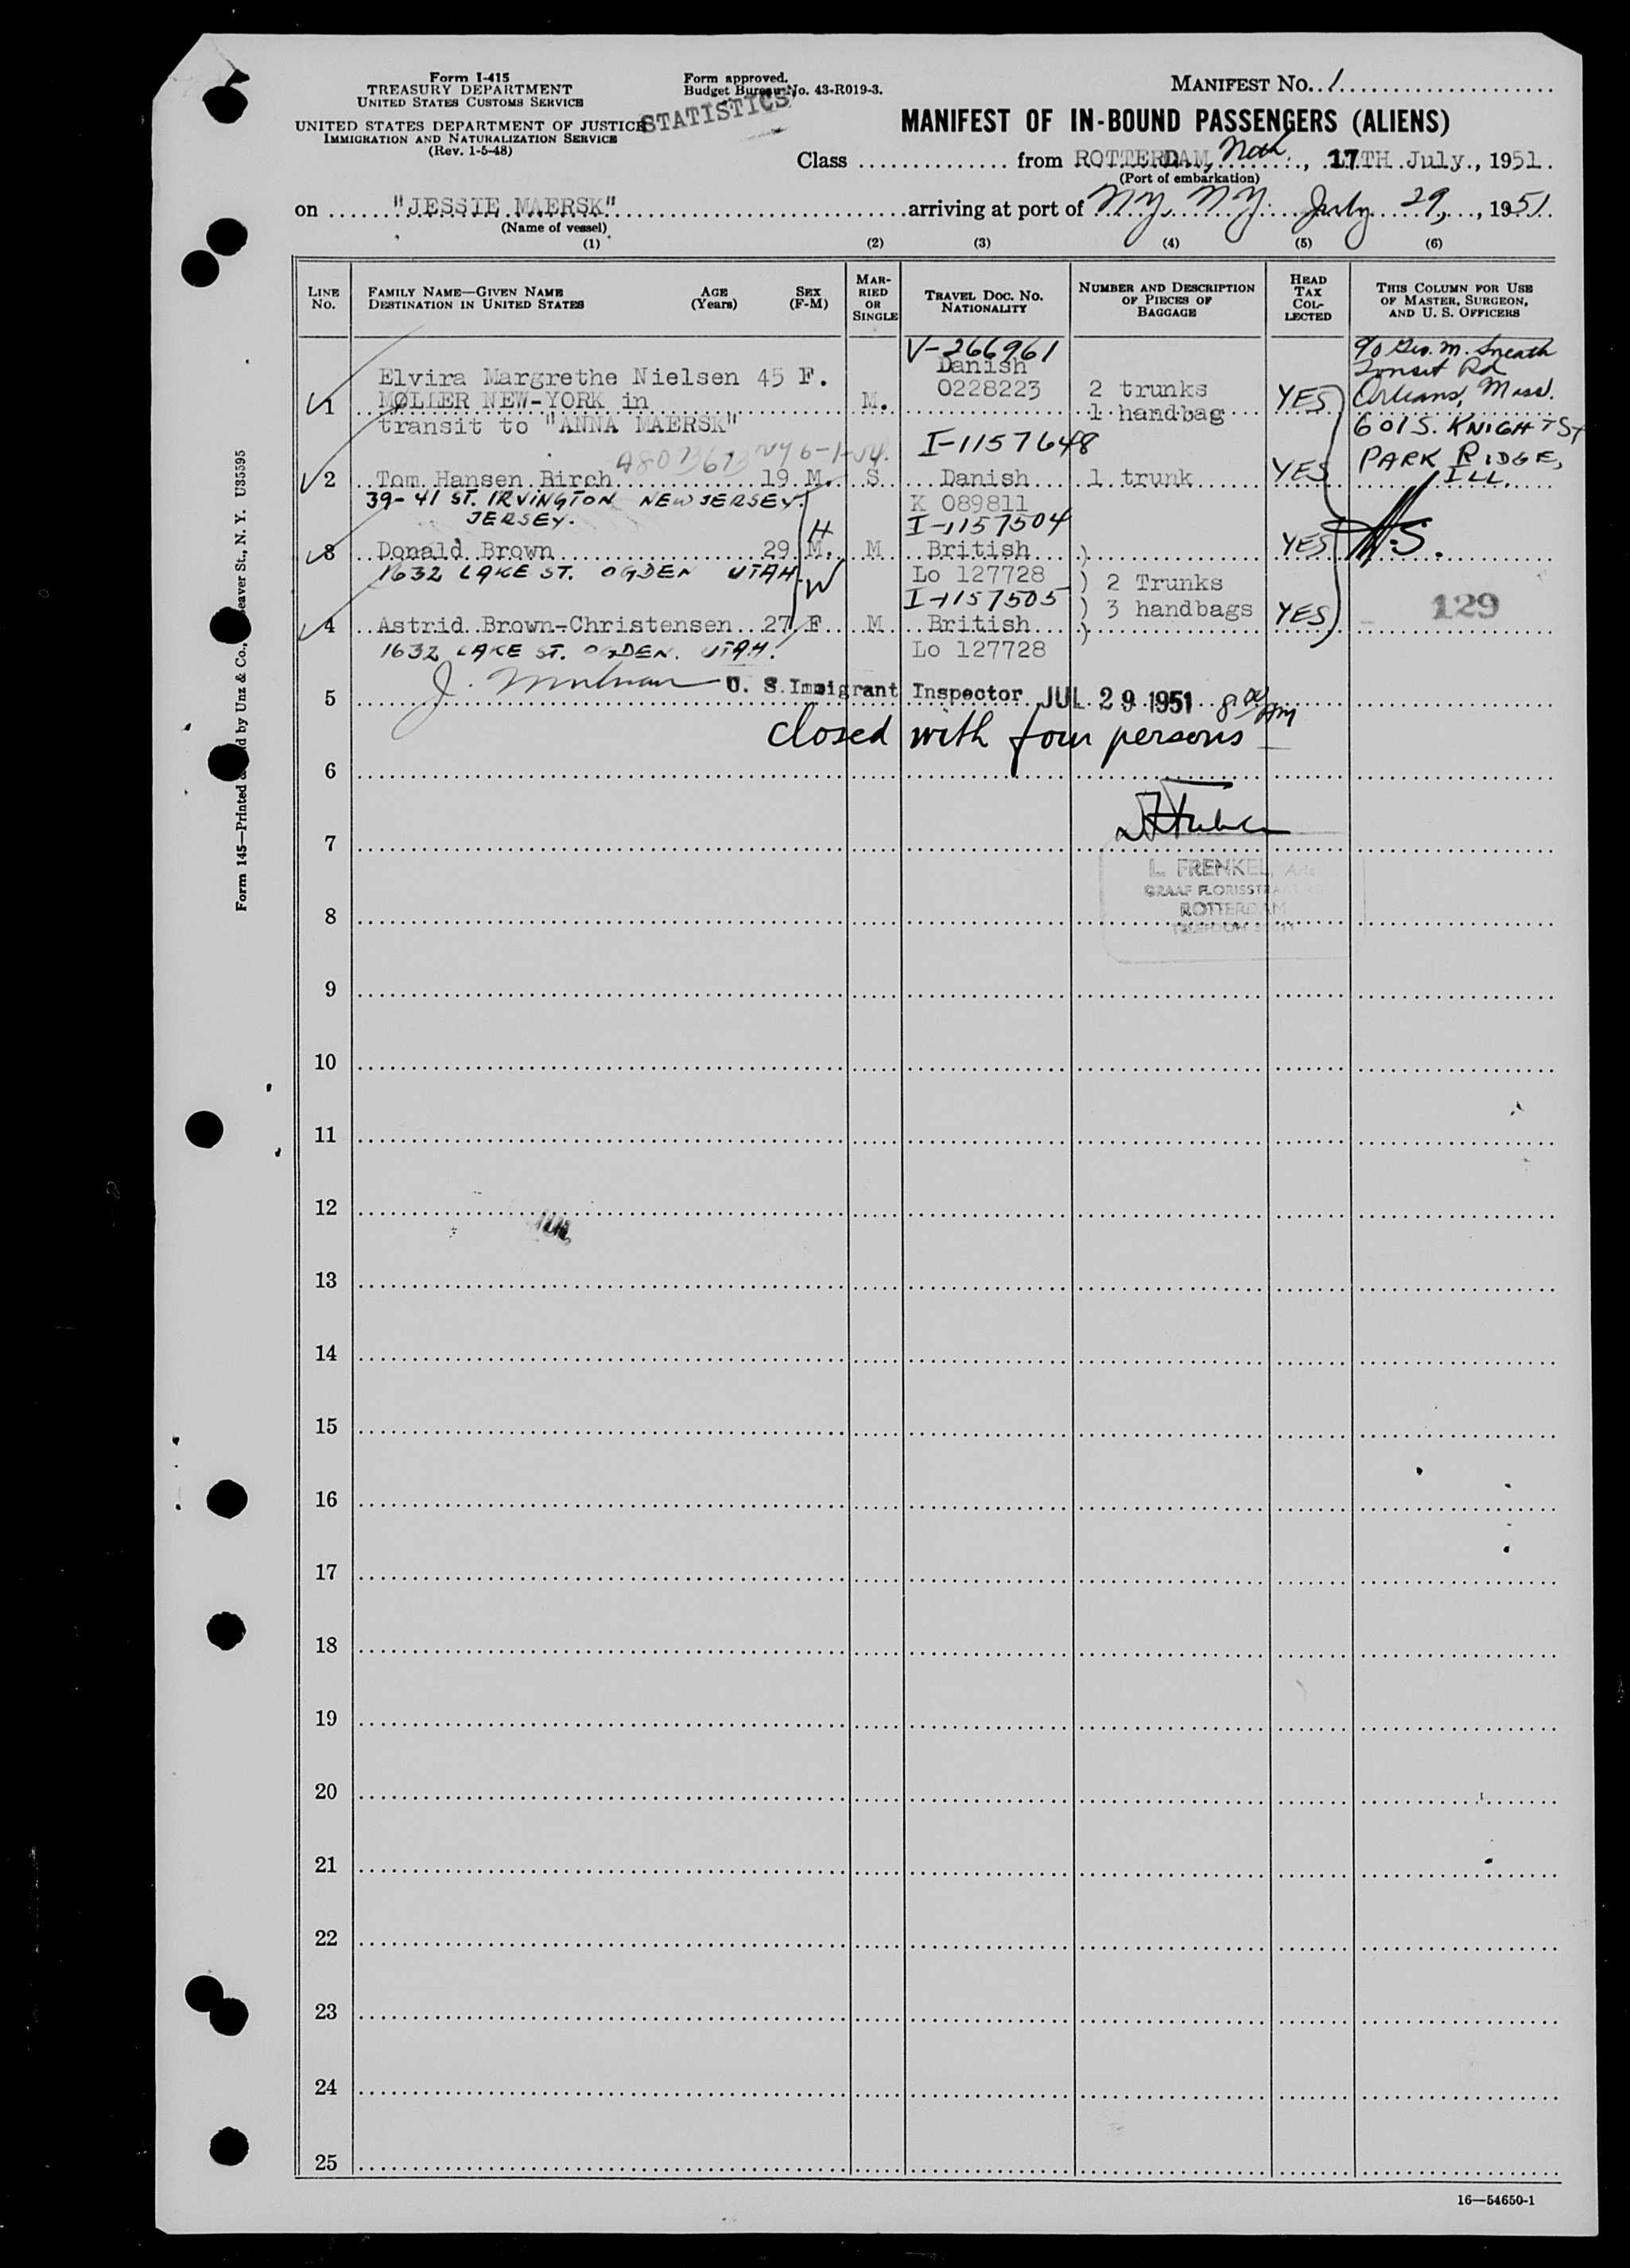 Form I-415
TREASURY DEPARTMENT
UNITED STATES CUSTOMS SERVICE
UNITED STATES DEPARTMENT OF JUSTICE
IMMIGRATION AND NATURALIZATION SERVICE
(Rev. 1-5-48)
Form approved.
Budget Bureau No. 43-R019-3.
STATISTICS
MANIFEST NO. 1
MANIFEST OF IN-BOUND PASSENGERS (ALIENS)
Class from ROTTERDAM, Neth, 17TH July, 1951.
(Port of embarkation)
on "JESSIE MAERSK" arriving at port of N.Y. N.Y. July 29, 1951.
(Name of vessel)
(1) (2) (3) (4) (5) (6)
LINE NO. FAMILY NAME—GIVEN NAME DESTINATION IN UNITED STATES AGE (Years) SEX (F-M) MARRIED OR SINGLE TRAVEL DOC. NO. NATIONALITY NUMBER AND DESCRIPTION OF PIECES OF BAGGAGE HEAD TAX COLLECTED THIS COLUMN FOR USE OF MASTER, SURGEON, AND U. S. OFFICERS
V-266961 c/o Geo. M. Sneath
Danish Tonset Rd
Elvira Margrethe Nielsen 45 F. 0228223 2 trunks
1 MØLLER NEW-YORK in M. 1 handbag YES Orleans, Mass.
transit to "ANNA MAERSK"
I-1157648 601 S. KNIGHT ST
A8073673
2 Tom Hansen Birch 19 M. S Danish 1 trunk YES PARK RIDGE, ILL.
39-41 ST. IRVINGTON NEW JERSEY. K 089811
JERSEY. I-1157504
H
3 Donald Brown 29 M. M British ) YES
1632 LAKE ST. OGDEN UTAH. Lo 127728 ) 2 Trunks
W I-1157505 ) 3 handbags
4 Astrid Brown-Christensen 27 F M British ) YES 129
1632 LAKE ST. OGDEN. UTAH. Lo 127728
5 U. S. Immigrant Inspector JUL 29 1951 8 00 AM
closed with four persons
6
7
L. FRENKEL,
GRAAF FLORISSTRAAT
8 ROTTERDAM
9
10
11
12
13
14
15
16
17
18
19
20
21
22
23
24
25
16—54650-1
Form 145—Printed by Unz & Co., Beaver St., N. Y. U35595